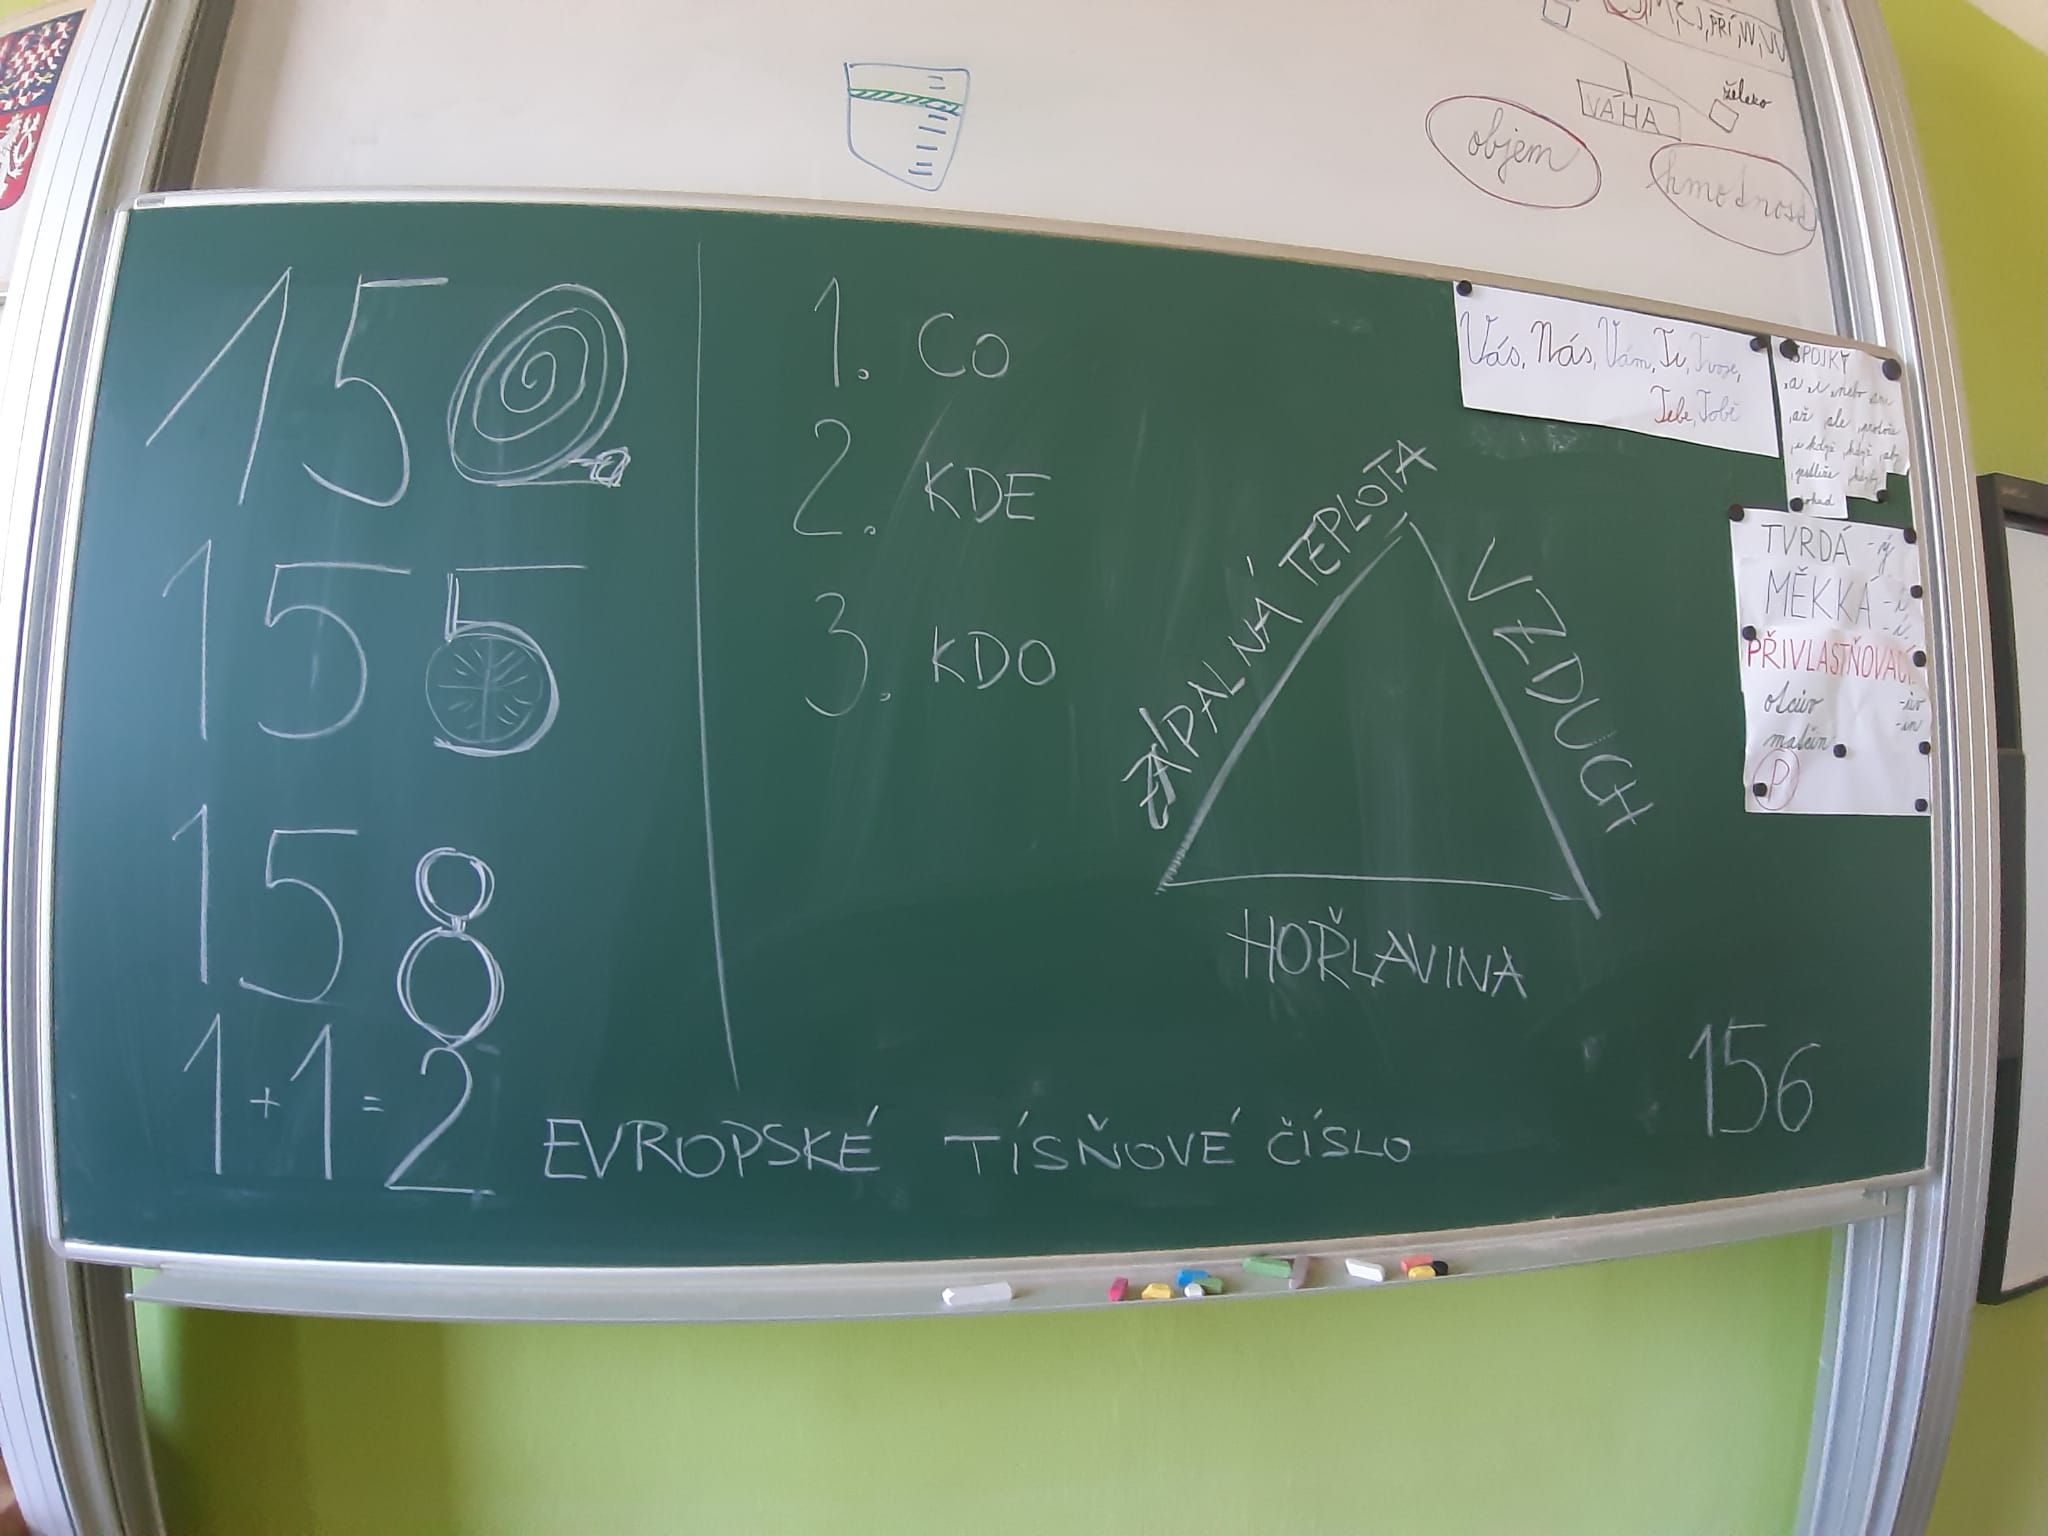 M, ČJ, PŘÍ,
VÁHA
železo
objem
hmodnosd
150
155
158
1+1=2 EVROPSKÉ TÍSŇOVÉ ČÍSLO
1. CO
2. KDE
3. KDO
ZÁPALNÁ TEPLOTA
VZDUCH
HOŘLAVINA
156
Vás, Nás, Vám, Ti, Tvoje,
Tebe, Tobě
SPOJKY
, a i , nebo ani
, až , ale , protože
, i když , když , aby
jestliže , kdyby
pokud
TVRDÁ -ý
MĚKKÁ -í
-í
PŘIVLASTŇOVACÍ
otcův -ův
matčin -in
P